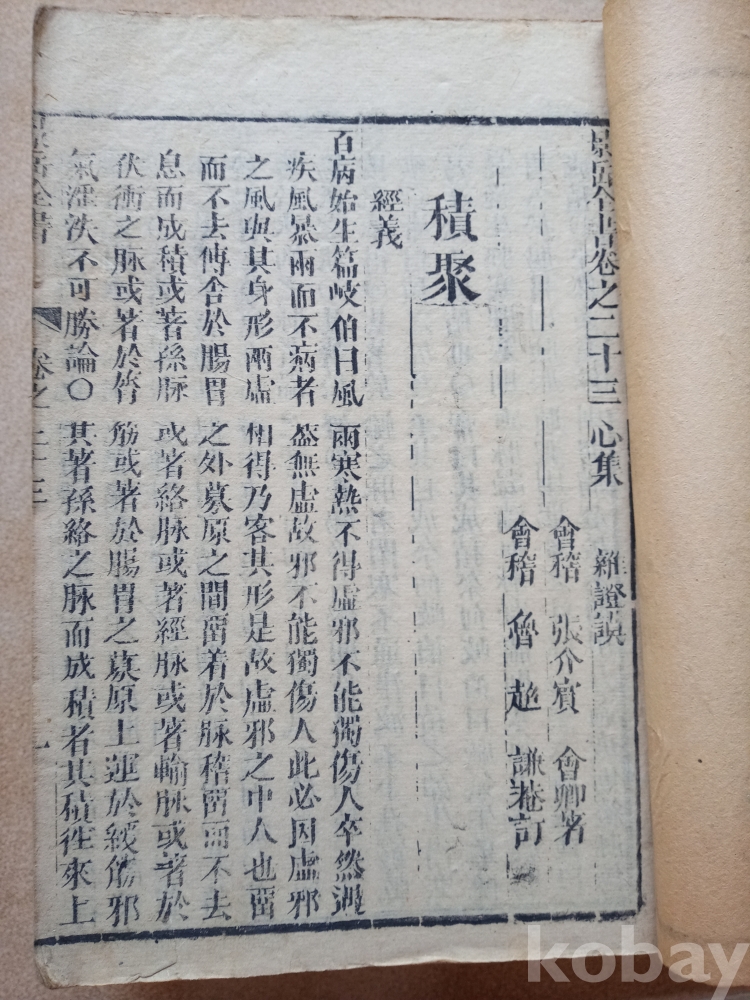 景岳全書卷之二十三心集 雜證謨
會稽 張介賓 會卿著
會稽 魯超 謙菴訂
積聚
經義
百病始生篇岐伯曰風雨寒熱不得虛邪不能獨傷人卒然逢
疾風暴雨而不病者蓋無虛故邪不能獨傷人此必因虛邪
之風與其身形兩虛相得乃客其形是故虛邪之中人也留
而不去傳舍於腸胃之外募原之間留着於脉稽留而不去
息而成積或著孫脉或著絡脉或著經脉或著輸脉或著於
伏衝之脉或著於膂筋或著於腸胃之募原上連於緩筋邪
氣淫泆不可勝論○其著孫絡之脉而成積者其積徃來上
景岳全書
卷之二十三
一
kobay